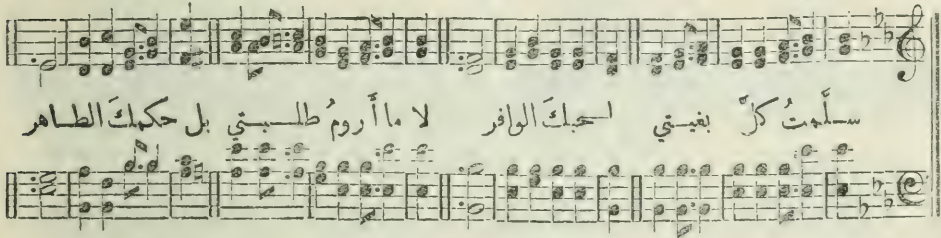 سلَّمتُ كلَّ بغيــتي لحبكَ الوافر لا ما أَرومُ طلــبتي بل حكمكَ الطــاهر